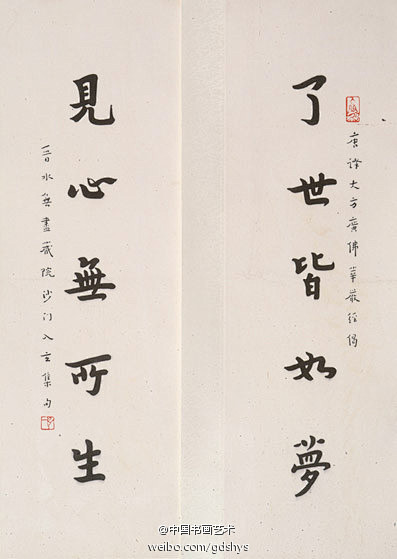 唐譯大方廣佛華嚴經偈
了世皆如夢
見心無所生
晉水無盡藏院沙門入玄集句
@中国书画艺术
weibo.com/gdshys